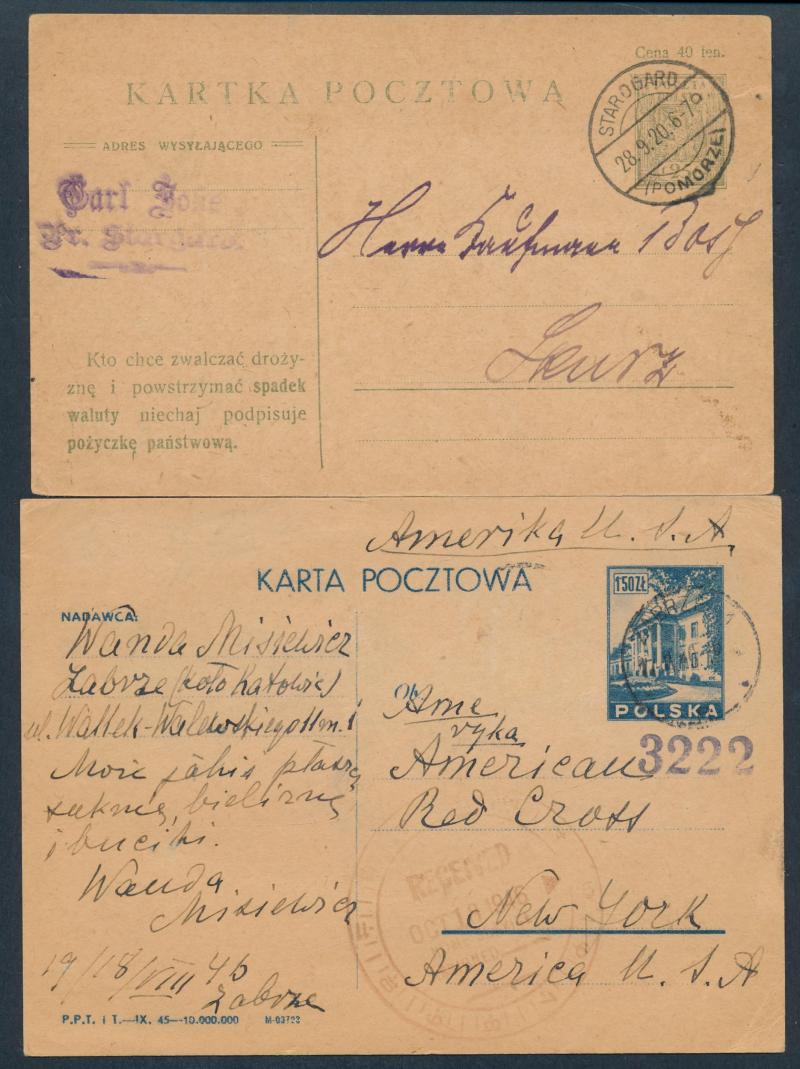 Cena 40 fen.
KARTKA POCZTOWA
STAROGARD
28.9.20.6-7
(POMORZE)
ADRES WYSYŁAJĄCEGO
Carl
Pr. Stargard.
Herrn Kaufmann
Skurz
Kto chce zwalczać droży-
znę i powstrzymać spadek
waluty niechaj podpisuje
pożyczkę państwową.
Amerika U. S. A.
KARTA POCZTOWA
150ZŁ
POLSKA
NADAWCA:
Wanda Misiewicz
Zabrze (koło Katowic)
ul. Wallek-Walewskiego
Może jakiś płaszcz
suknię, bieliznę
i buciki.
Wanda
Misiewicz
19/18/VIII 46
Zabrze
Ame
ryka
3222
American
Red Cross
RECEIVED
OCT
New York
America U. S. A
P.P.T. i T.—IX. 45—10.000.000 M-03723